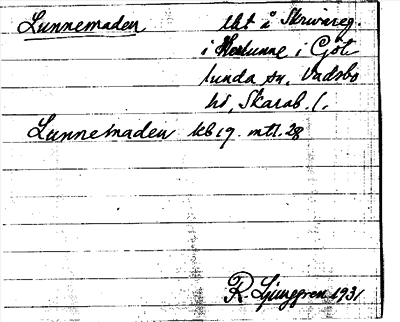 Lunnemaden lht å Skrivareg.
i Horlunne i Göt
lunda sn. Vadsbo
hd, Skarab. l.
Lunnemaden kb 19. mtl. 28
R. Ljunggren 1931